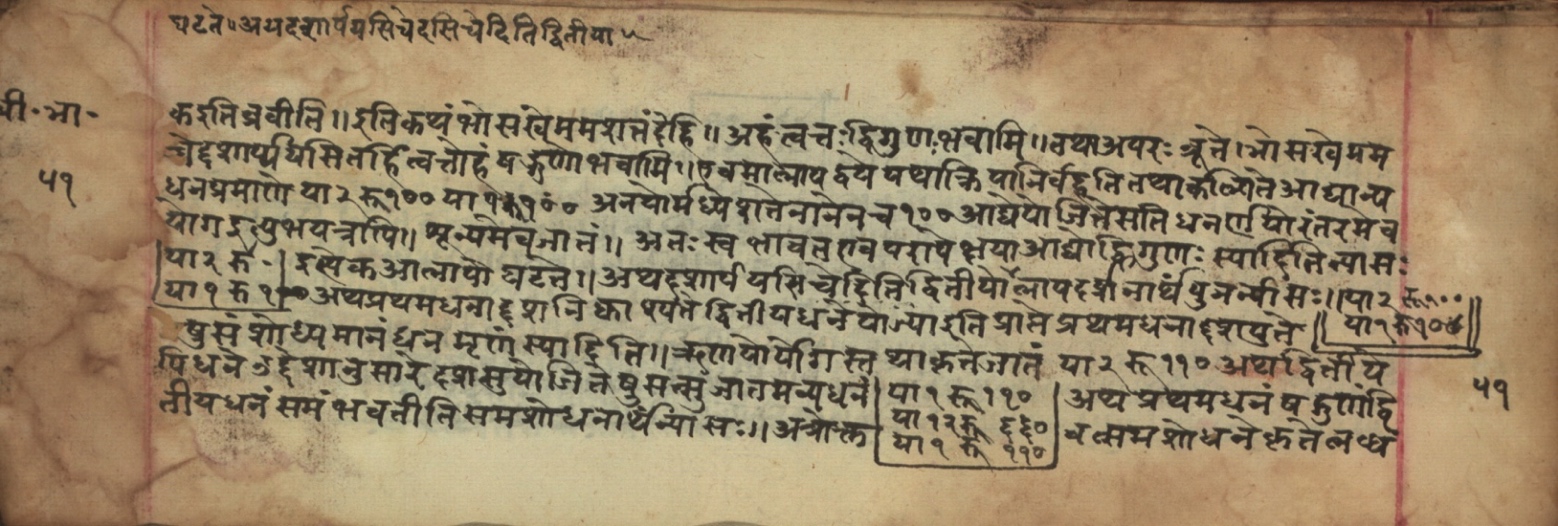 घटते॰ अथदशार्पयसिचेदसिचेदितिद्वितीया
वी॰ भा॰
५१
कइतिब्रवीति॥ इतिकथंभोसखेममशतंदेहि॥ अहंत्वत्तःद्विगुणःभवामि॥ तथाअपरःब्रूते। भोसखेमम
चेद्दशार्प्पयिसितर्हित्वत्तोहंषड्गुणोभवामि॥ एवमालापद्वयं यथाक्ति पानिर्वहतितथाकल्पितेआद्यान्य
धनप्रमाणे या २ रू १०० या १ रू १०० अनयोर्मध्ये शतेनानेनच १०० आद्येयोजितेसति धनर्णयोरंतरमेव
योगइत्युभयत्रापि॥ शून्यमेवजातं॥ अतः स्वभावतएवपरापेक्षयाआद्योद्विगुणः स्यादितिन्यासः
या २ रू ॰ इत्येकआलापो घटते॥ अथदशार्पयसिचेदितिद्वितीयोलापदर्शनार्थंपुनर्न्यासः॥ या २ रू १००
या १ रू १०० अथप्रथमधनाद्दशनिष्काश्यंते द्वितीयधनेयोज्याइतिप्राप्ते प्रथमधनाद्दशयुते या १ रू १००
षुसंशोध्यमानं धनमृणं स्यादिति॥ ऋणयोर्योगस्तथाकृतेजातं या २ रू ११० अथद्वितीये
पिधने उद्देशानुसारे दशसुयोजितेषुसत्सुजातमन्यधनं या १ रू ११० अथ प्रथमधनं षड्गुणंद्वि
तीयधनं समं भवतीतिसमशोधनार्थंन्यासः॥ अत्रोक्त या १२ रू ६६० वत्समशोधनेकृतेलब्धं
या १ रू ११०
५१